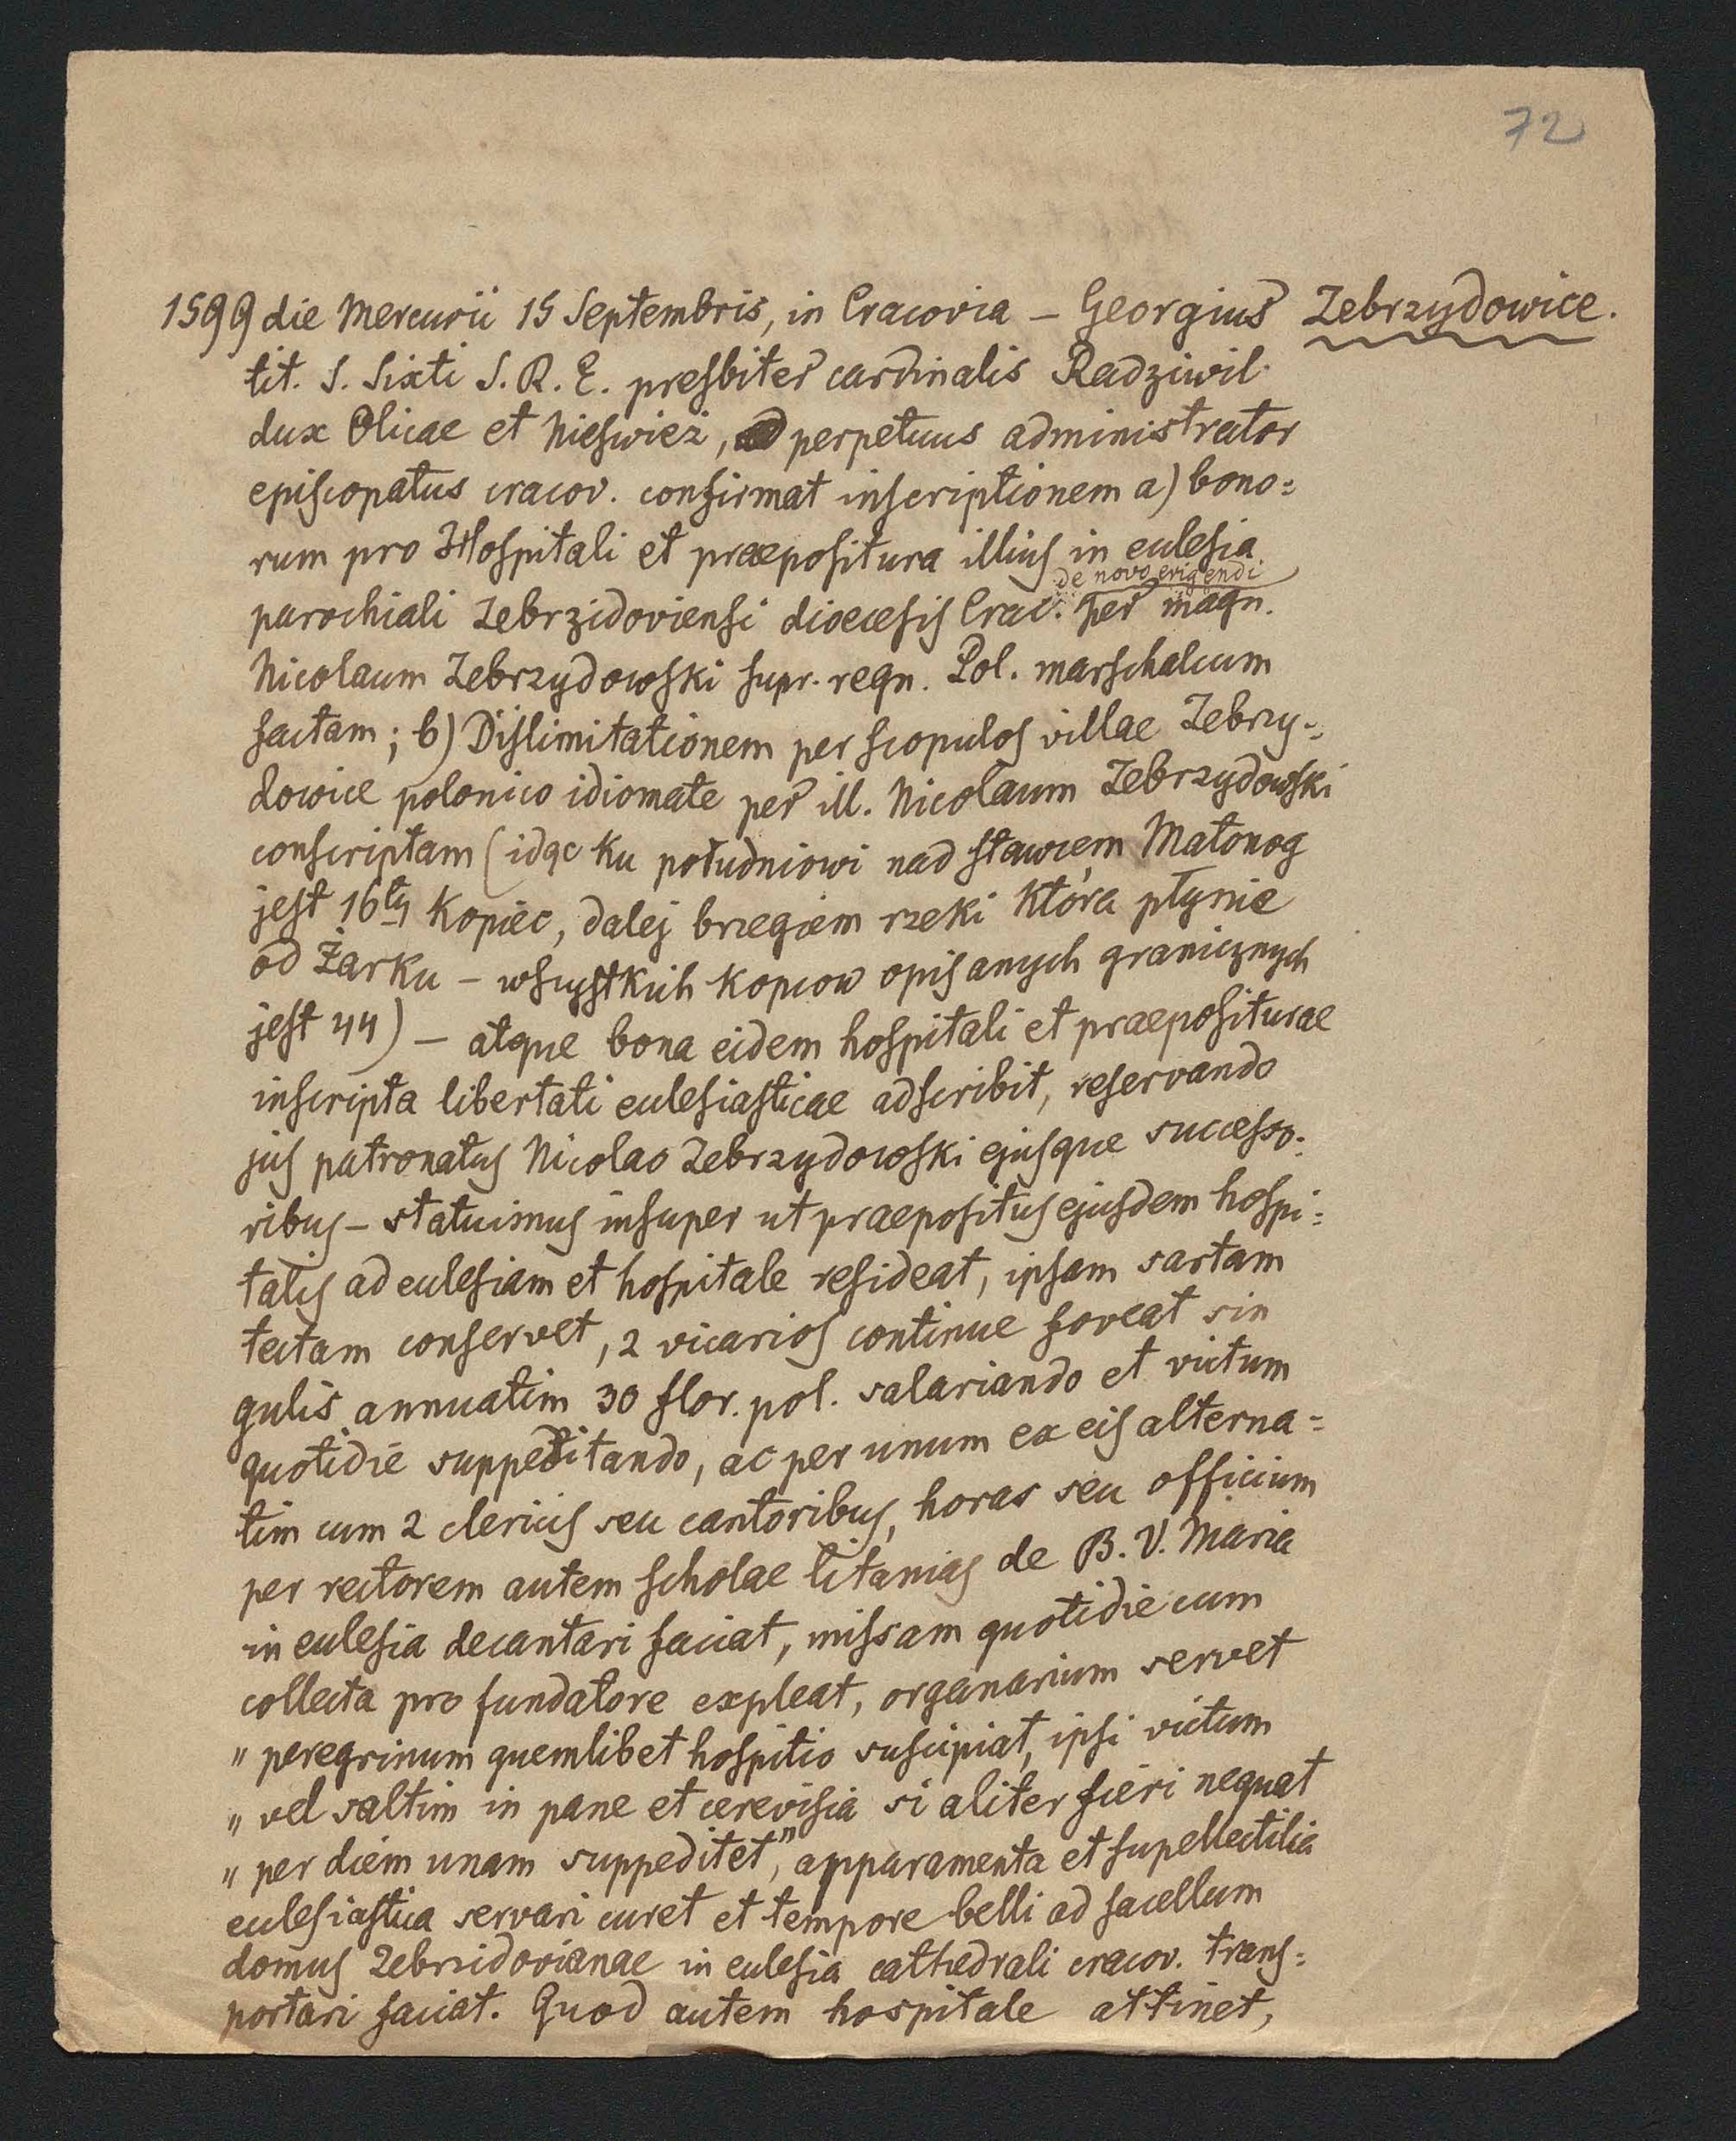 72
1599 die Mercurii 15 Septembris, in Cracovia – Georgius Zebrzydowice.
tit. S. Sixti S. R. E. presbiter cardinalis Radziwil
dux Olicae et Nieswiez, perpetuus administrator
episcopatus cracov. confirmat inscriptionem a) bono=
rum pro Hospitali et praepositura illius in eclesia
de novo erigendi
parochiali Zebrzidoviensi dioecesis Crac. per magn.
Nicolaum Zebrzydowski supr. regn. Pol. marschalcum
factam; b) Dislimitationem per scopulos villae Zebrzy=
dowice polonico idiomate per ill. Nicolaum Zebrzydowski
conscriptam (idąc ku południowi nad stawem Małonog
jest 16ty Kopiec, dalej brzegiem rzeki która płynie
od Żarku – wszystkich kopcow opisanych granicznych
jest 44) – atque bona eidem hospitali et praepositurae
inscripta libertati eclesiasticae adscribit, reservando
jus patronatus Nicolao Zebrzydowski ejusque successo=
ribus – statuimus insuper ut praepositus ejusdem hospi=
talis ad eclesiam et hospitale resideat, ipsam sartam
tectam conservet, 2 vicarios continue foveat sin
gulis annuatim 30 flor. pol. salariando et victum
quotidie suppeditando, ac per unum ex eis alterna=
tim cum 2 clericis seu cantoribus, horas seu officium
per rectorem autem scholae litanias de B. V. Maria
in eclesia decantari faciat, missam quotidie cum
collecta pro fundatore expleat, organarium servet
" peregrinum quemlibet hospitio suscipiat, ipsi victum
" vel saltim in pane et cerevisia si aliter fieri nequat
" per diem unam suppeditet", apparamenta et supellectilia
eclesiastica servari curet et tempore belli ad sacellum
domus Zebrzidovianae in eclesia cathedrali cracov. trans=
portari faciat. Quod autem hospitale attinet,